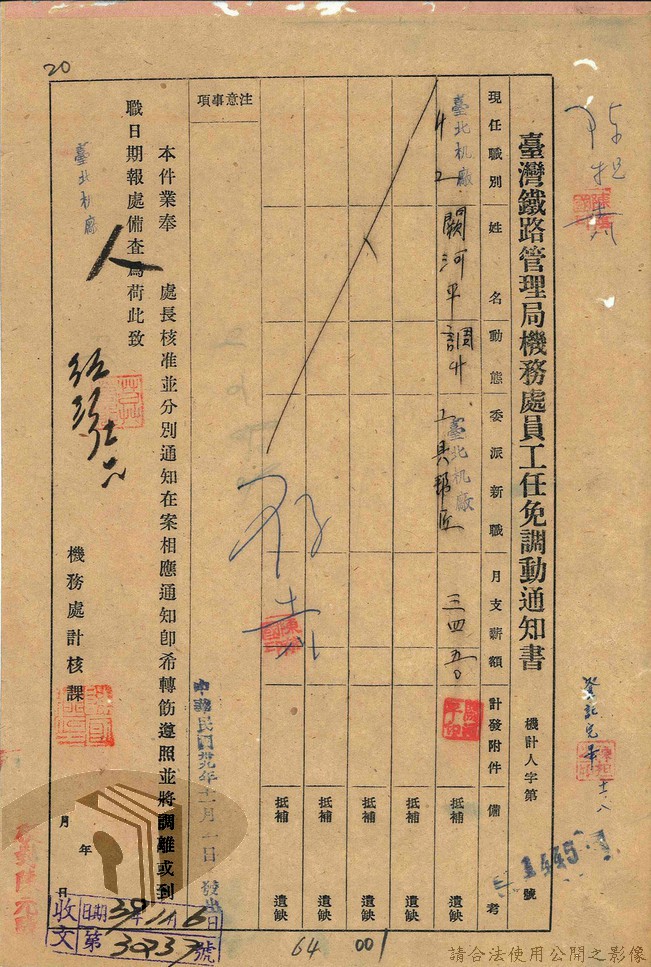 20
臺灣鐵路管理局機務處員工任免調動通知書
機計人字第 1445 號
現任職別
姓名
動態
委派新職
月支薪額
計發附件
備考
臺北机廠
闕河平
調升
臺北机廠
工具幫匠
三四五〇
抵補 遺缺
抵補 遺缺
抵補 遺缺
抵補 遺缺
抵補 遺缺
注意事項
本件業奉 處長核准並分別通知在案相應通知卽希轉飭遵照並將調離或到
職日期報處備查爲荷此致
臺北机廠
人
機務處計核課
中華民國卅九年十一月一日發出
年
月
日
登記完畢
收文
日期 39年11月6日
第3037號
64
001
請合法使用公開之影像